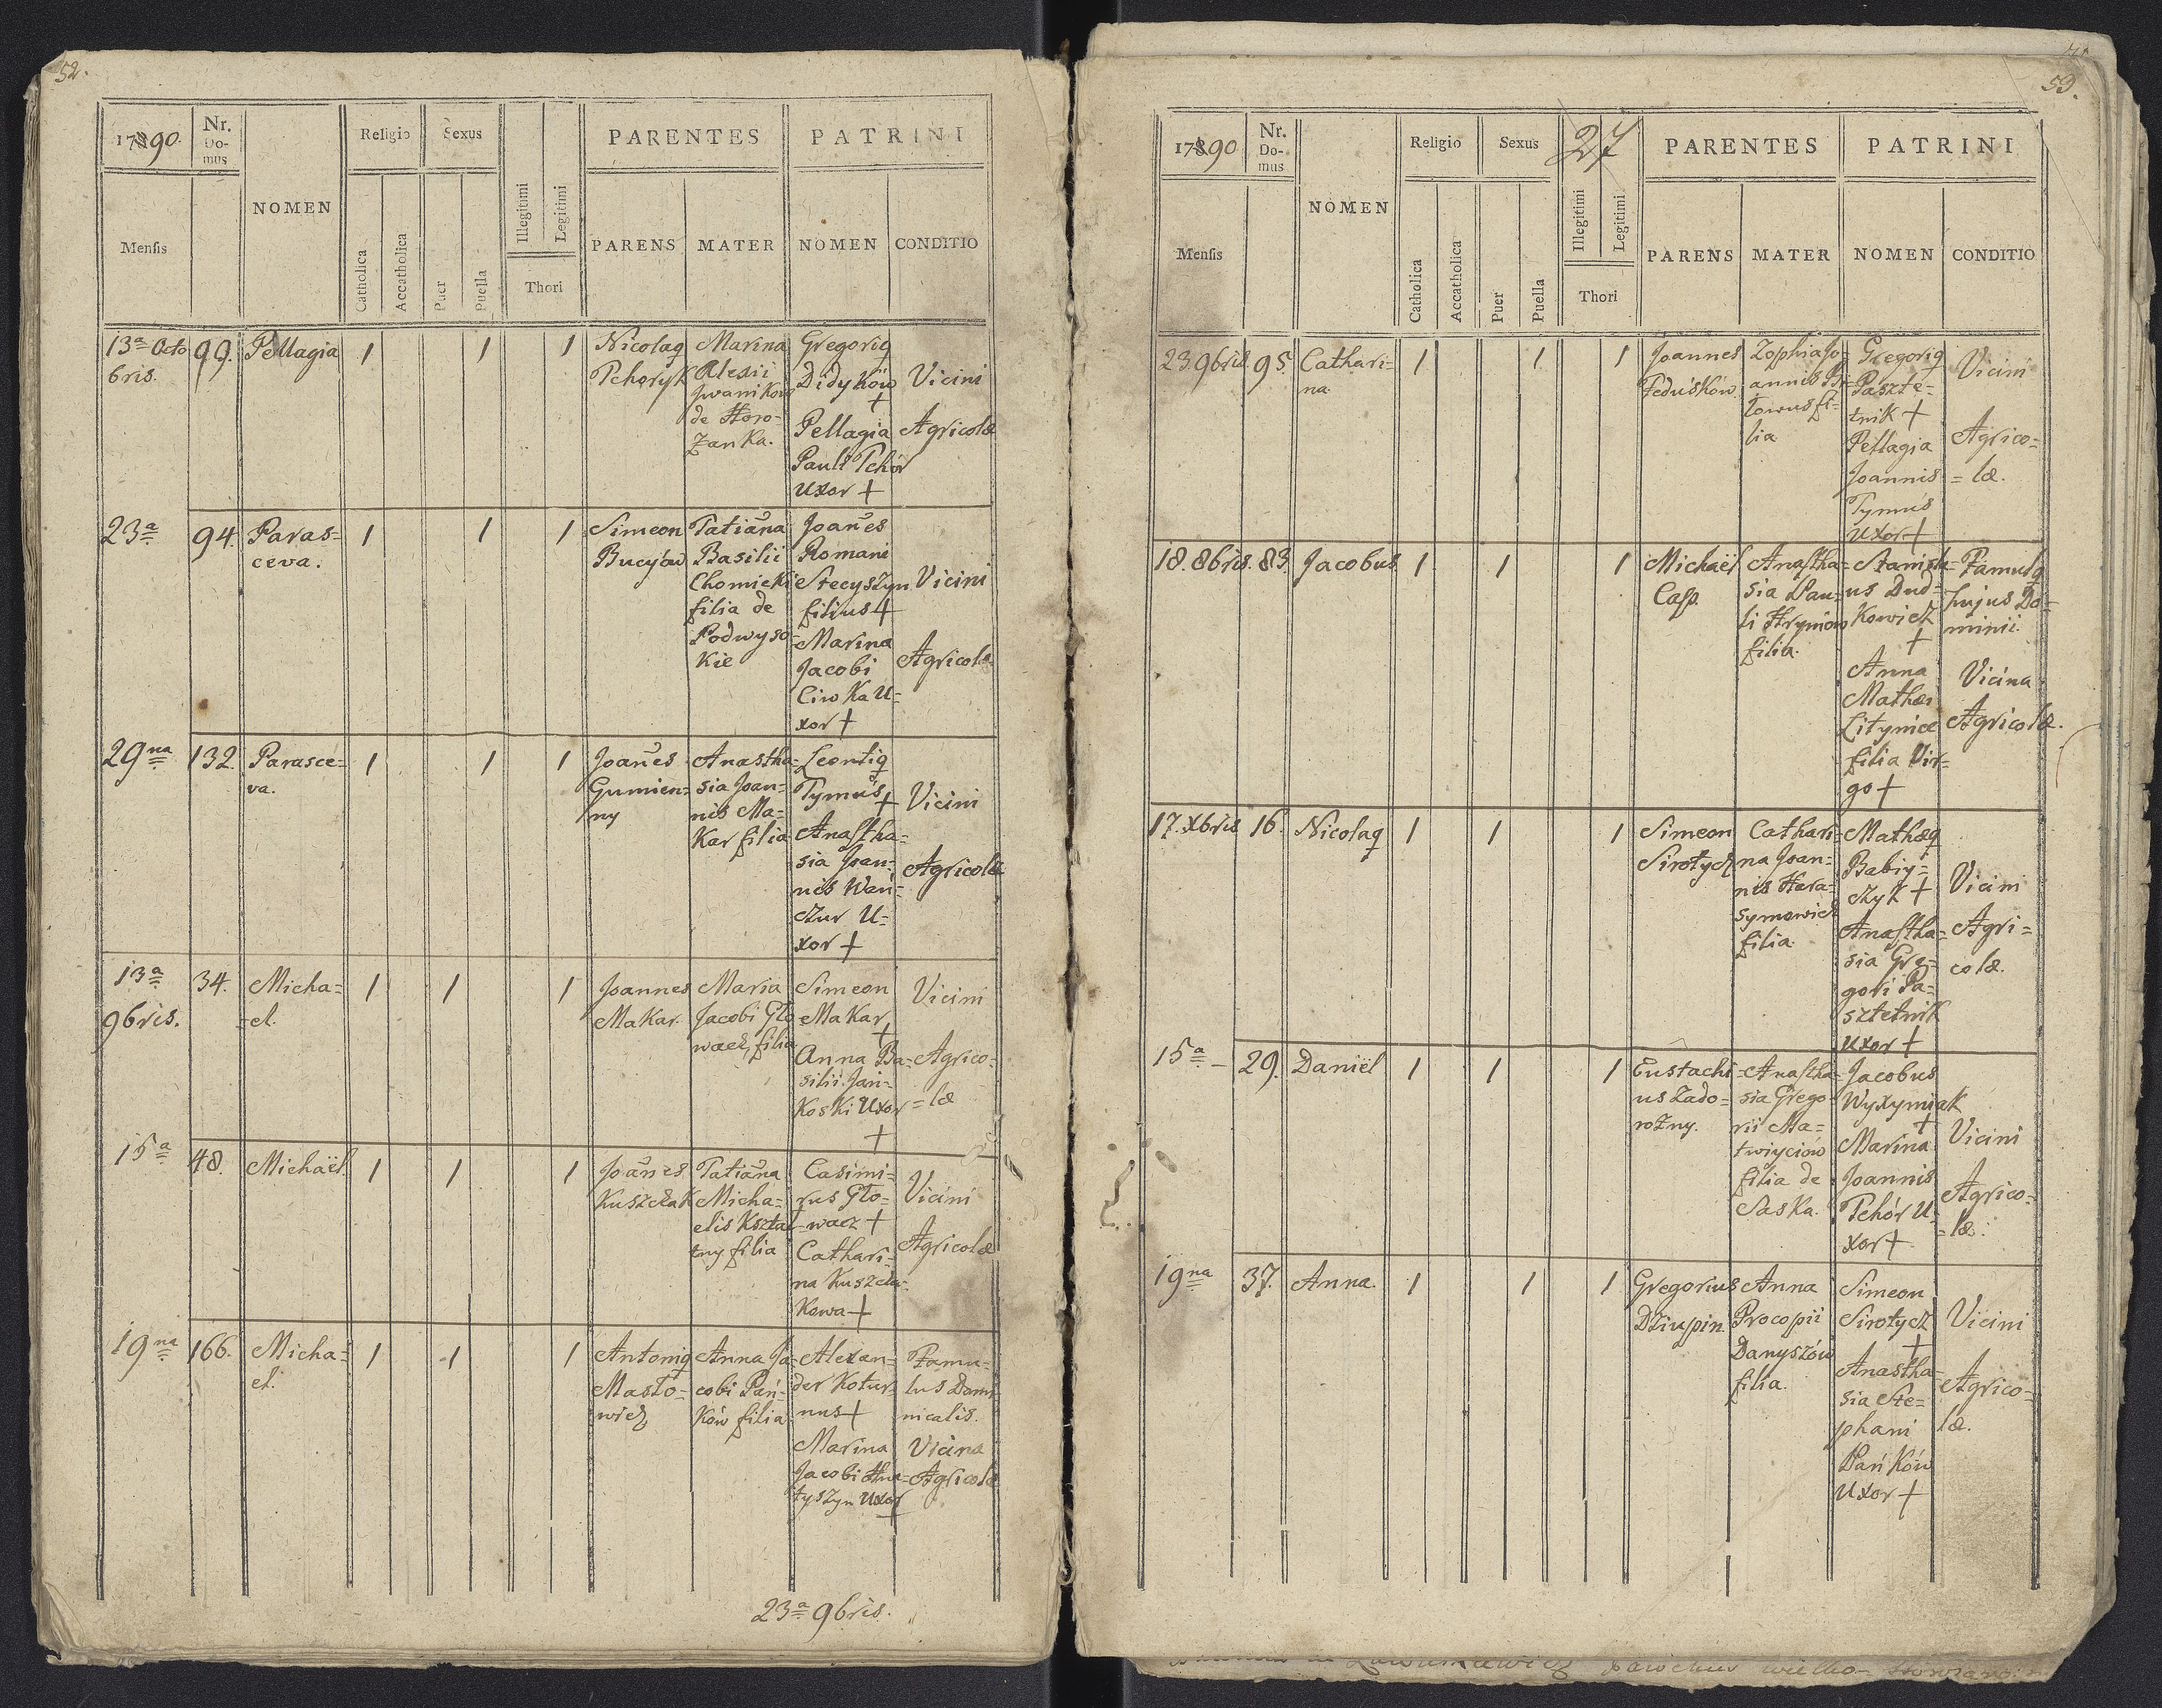 52.
1790.
Nr.
Do-
mus
NOMEN
Religio
Sexus
PARENTES
PATRINI
Mensis
Catholica
Accatholica
Puer
Puella
Illegitimi
Legitimi
Thori
PARENS
MATER
NOMEN
CONDITIO
13ª Octo
bris.
99.
Pellagia
1
1
1
Nicolaq
Pchoryk
Marina
Alexii
Jwanikow
de Horo-
żanka.
Gregoriq
Didyków
+
Pellagia
Pauli Tchór
Uxor +
Vicini
Agricolæ
23ª
94.
Paras-
ceva.
1
1
1
Simeon
Bucyów
Tatiana
Basilii
Chomicki
filia de
Podwyso-
kie
Joanes
Romani
Stecyszyn
filius +
Marina
Jacobi
Ciwka U-
xor +
Vicini
Agricolæ
29na
132.
Parasce-
va.
1
1
1
Joanes
Gumien-
ny
Anastha-
sia Joan-
nis Ma-
kar filia
Leontiq
Tymuś +
Anastha-
sia Joan-
nis Wań-
czur U-
xor +
Vicini
Agricolæ
13ª
9bris.
34.
Micha-
-el.
1
1
1
Joannes
Makar.
Maria
Jacobi Gło-
wacz filia
Simeon
Makar
+
Anna Ba-
silii Jan-
koski Uxor
+
Vicini
Agrico-
=læ
15ª
48.
Michaël.
1
1
1
Joanes
Kuszczak
Tatiana
Micha-
elis Kształ-
tny filia
Casimi-
rus Gło-
wacz +
Cathari-
na Kuszcza-
kowa +
Vicini
Agricolæ
19na
166.
Micha-
el.
1
1
1
Antoniq
Masło-
wicz
Anna Ja-
cobi Pań-
ków filia
Alexan-
der Kotur-
nus +
Marina
Jacobi Hna-
tyszyn Uxor
+
Famu-
lus Domi-
nicalis.
Vicina
Agricolæ
23ª 9bris.
53.
1790
Nr.
Do-
mus
NOMEN
Religio
Sexus
27
PARENTES
PATRINI
Mensis
Catholica
Accatholica
Puer
Puella
Illegitimi
Legitimi
Thori
PARENS
MATER
NOMEN
CONDITIO
23. 9bris
95.
Cathari-
na.
1
1
1
Joannes
Feduśków
Zophia Jo-
annis Bi-
łowus fi-
lia
Gregoriq
Paszte-
tnik +
Pellagia
Joannis
Tymuś
Uxor +
Vicini
Agrico-
= læ.
18. 8bris.
83.
Jacobus
1
1
1
Michaël
Cap.
Anastha-
sia Pau-
li Hryniow
filia.
Stanisla-
us Dud-
kowicz
+
Anna
Mathæi
Litynice
filia Vir-
go +
Famulq
hujus Do-
minii.
Vicina
Agricolæ.
17. Xbris
16.
Nicolaq
1
1
1
Simeon
Sirotycz
Cathari-
na Joan-
nis Hara-
symowicz
filia.
Mathæq
Babiy-
czyk +
Anastha-
sia Gre-
gori Pa-
sztetnik
Uxor +
Vicini
Agri-
colæ.
15ª
29.
Daniël
1
1
1
Eustachi-
us Zado-
rożny.
Anastha-
sia Grego-
rii Ma-
twiyciów
filia de
Saska.
Jacobus
Wyxymiak
+
Marina
Joannis
Tchór U-
xor +
Vicini
Agrico-
=læ.
19na
37.
Anna.
1
1
1
Gregorius
Dziupin.
Anna
Procopii
Danyszów
filia.
Simeon
Sirotycz
+
Anastha-
sia Ste-
phani
Pańków
Uxor +
Vicini
Agrico-
læ.